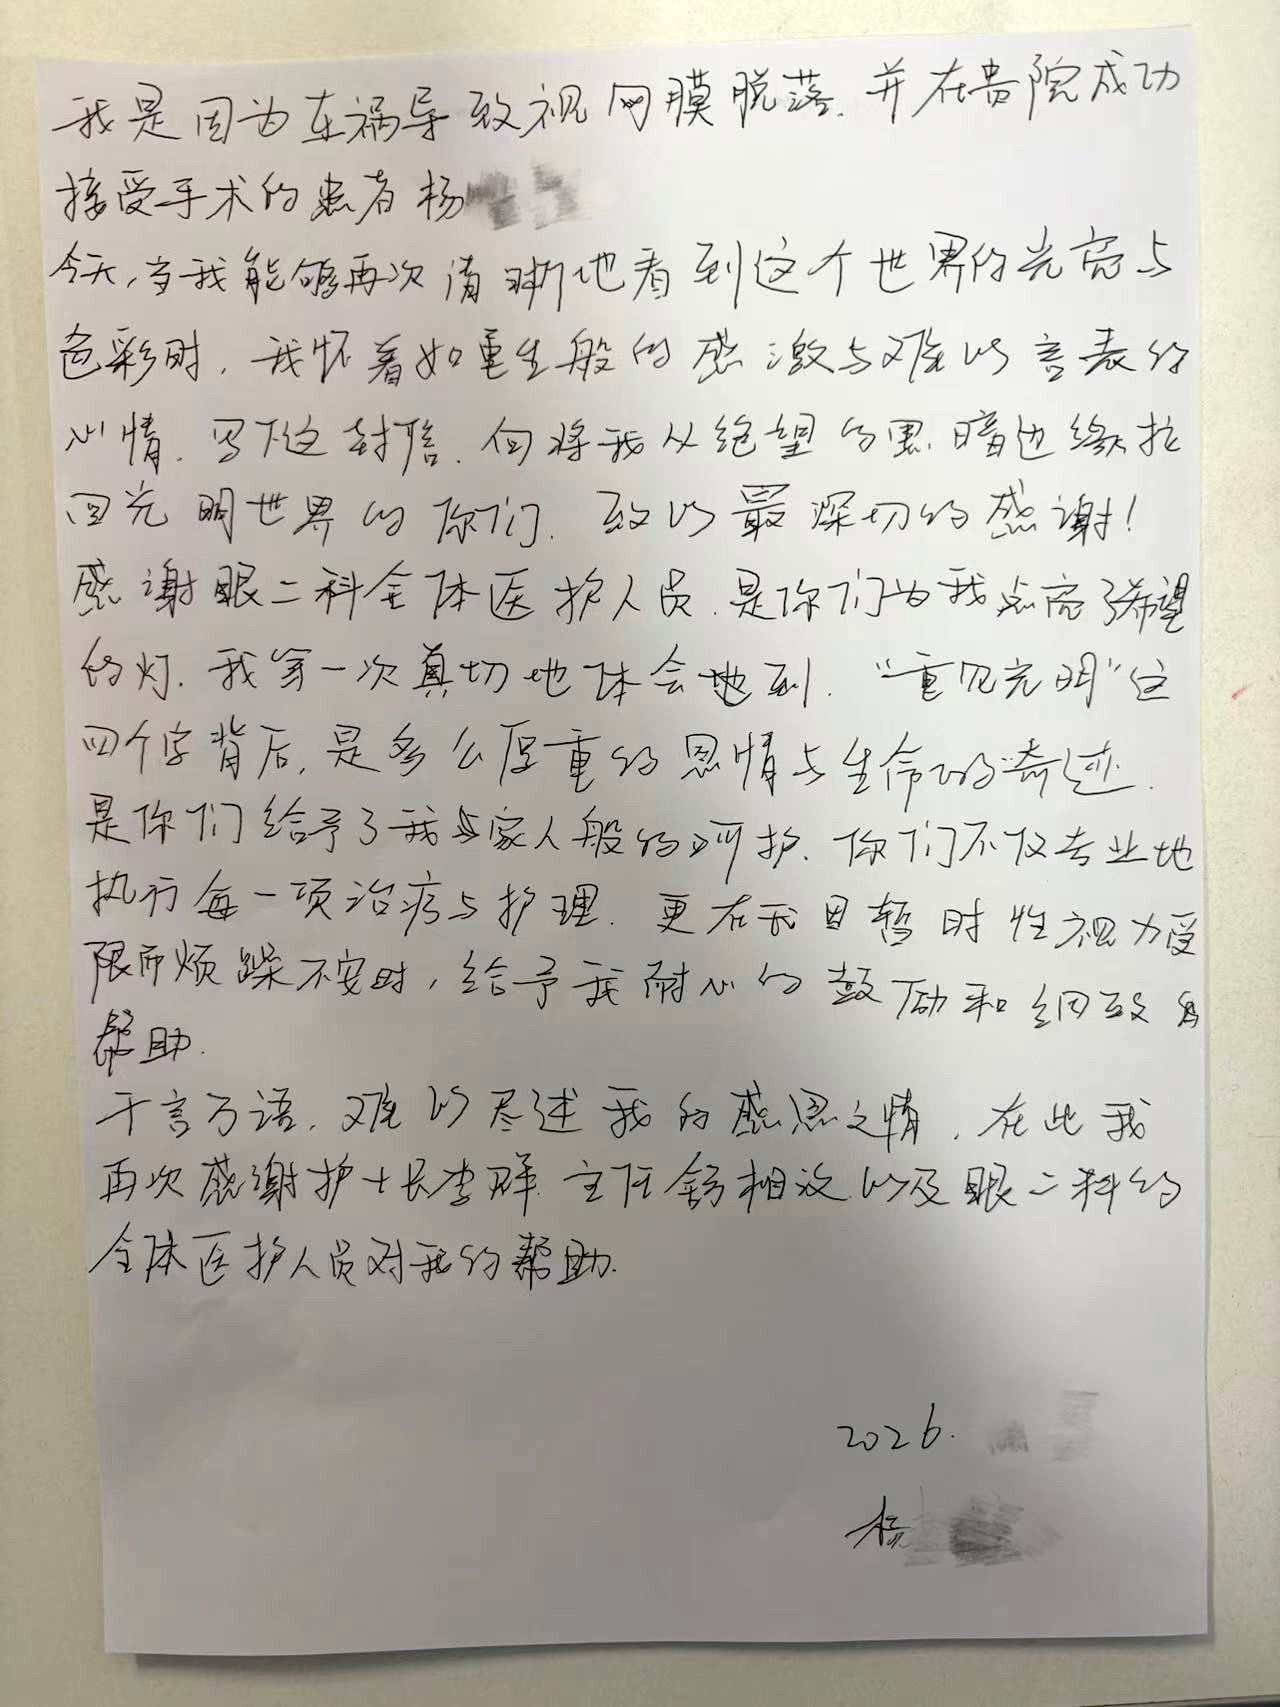 我是因为车祸导致视网膜脱落.并在贵院成功
接受手术的患者杨
今天,当我能够再次清晰地看到这个世界的光亮与
色彩时,我怀着如重生般的感激与难以言表的
心情.写下这封信.向将我从绝望的黑暗边缘拉
回光明世界的你们.致以最深切的感谢!
感谢眼二科全体医护人员.是你们为我点亮了希望
的灯.我第一次真切地体会地到.“重见光明”这
四个字背后,是多么厚重的恩情与生命的奇迹.
是你们给予了我与家人般的呵护.你们不仅专业地
执行每一项治疗与护理.更在我因暂时性视力受
限而烦躁不安时,给予我耐心的鼓励和细致的
帮助.
千言万语,难以尽述我的感恩之情.在此我
再次感谢护士长李群.主任舒相汶以及眼二科的
全体医护人员对我的帮助.
2026.
杨